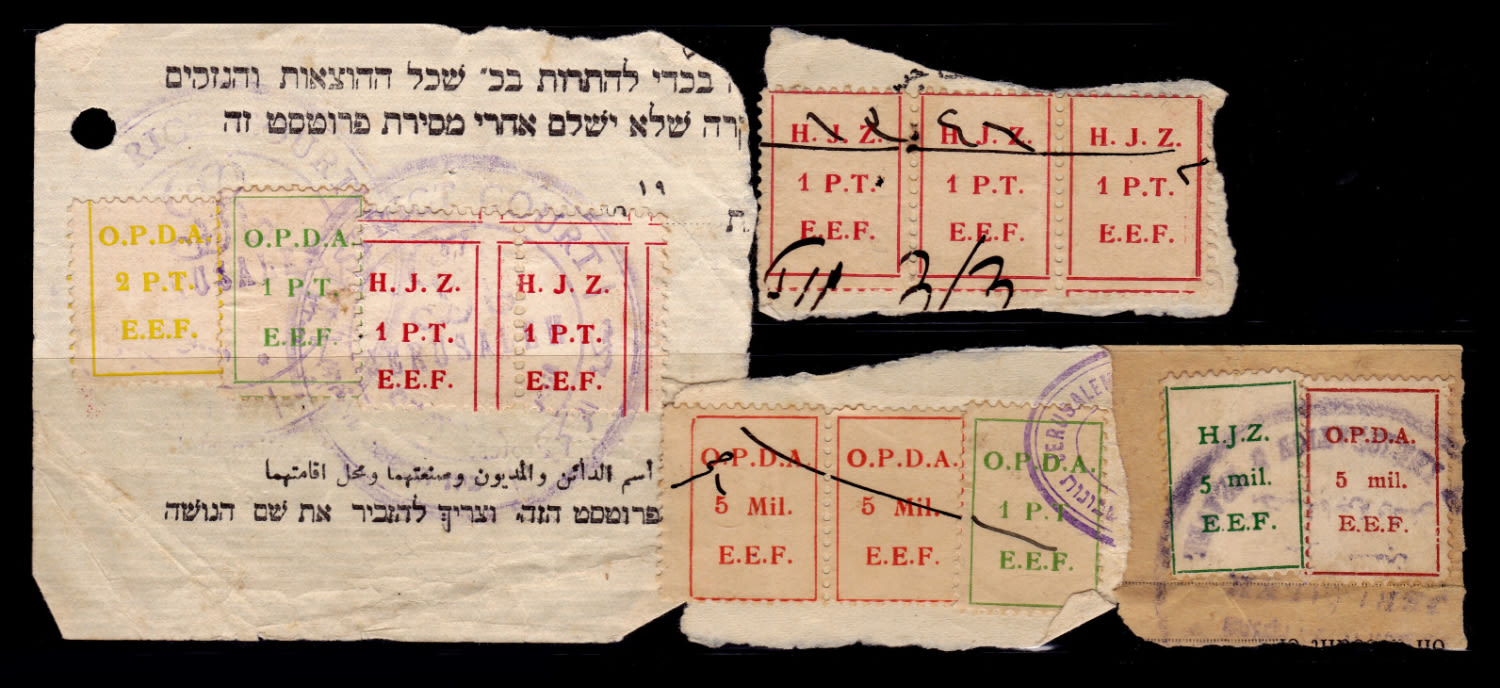 בכדי להתרות בכ״ שכל ההוצאות והנזכים
שלא ישלם אחרי מסירת פרוטסט זה
O.P.D.A.
2 P.T.
E.E.F.
O.P.D.A.
1 P.T
E.E.F
H. J. Z.
1 P.T.
E.E.F.
H. J. Z.
1 P.T.
E.E.F.
RICT COURT
RICT COURT
JERUSALEM
اسم الدائن والمديون وصنعتهما ومحل اقامتهما
פרוטסט הזה, וצריך להזכיר את שם הנושה
H. J. Z.
1 P.T.
E.E.F.
H. J. Z.
1 P.T.
E.E.F.
H. J. Z.
1 P.T.
E.E.F.
3/3
O.P.D.A
5 Mil.
E.E.F.
O.P.D.A.
5 Mil.
E.E.F.
O.P.D.A
1 P.T
E.E.F.
JERUSALEM
H.J.Z.
5 mil.
E.E.F.
O.P.D.A.
5 mil.
E.E.F.